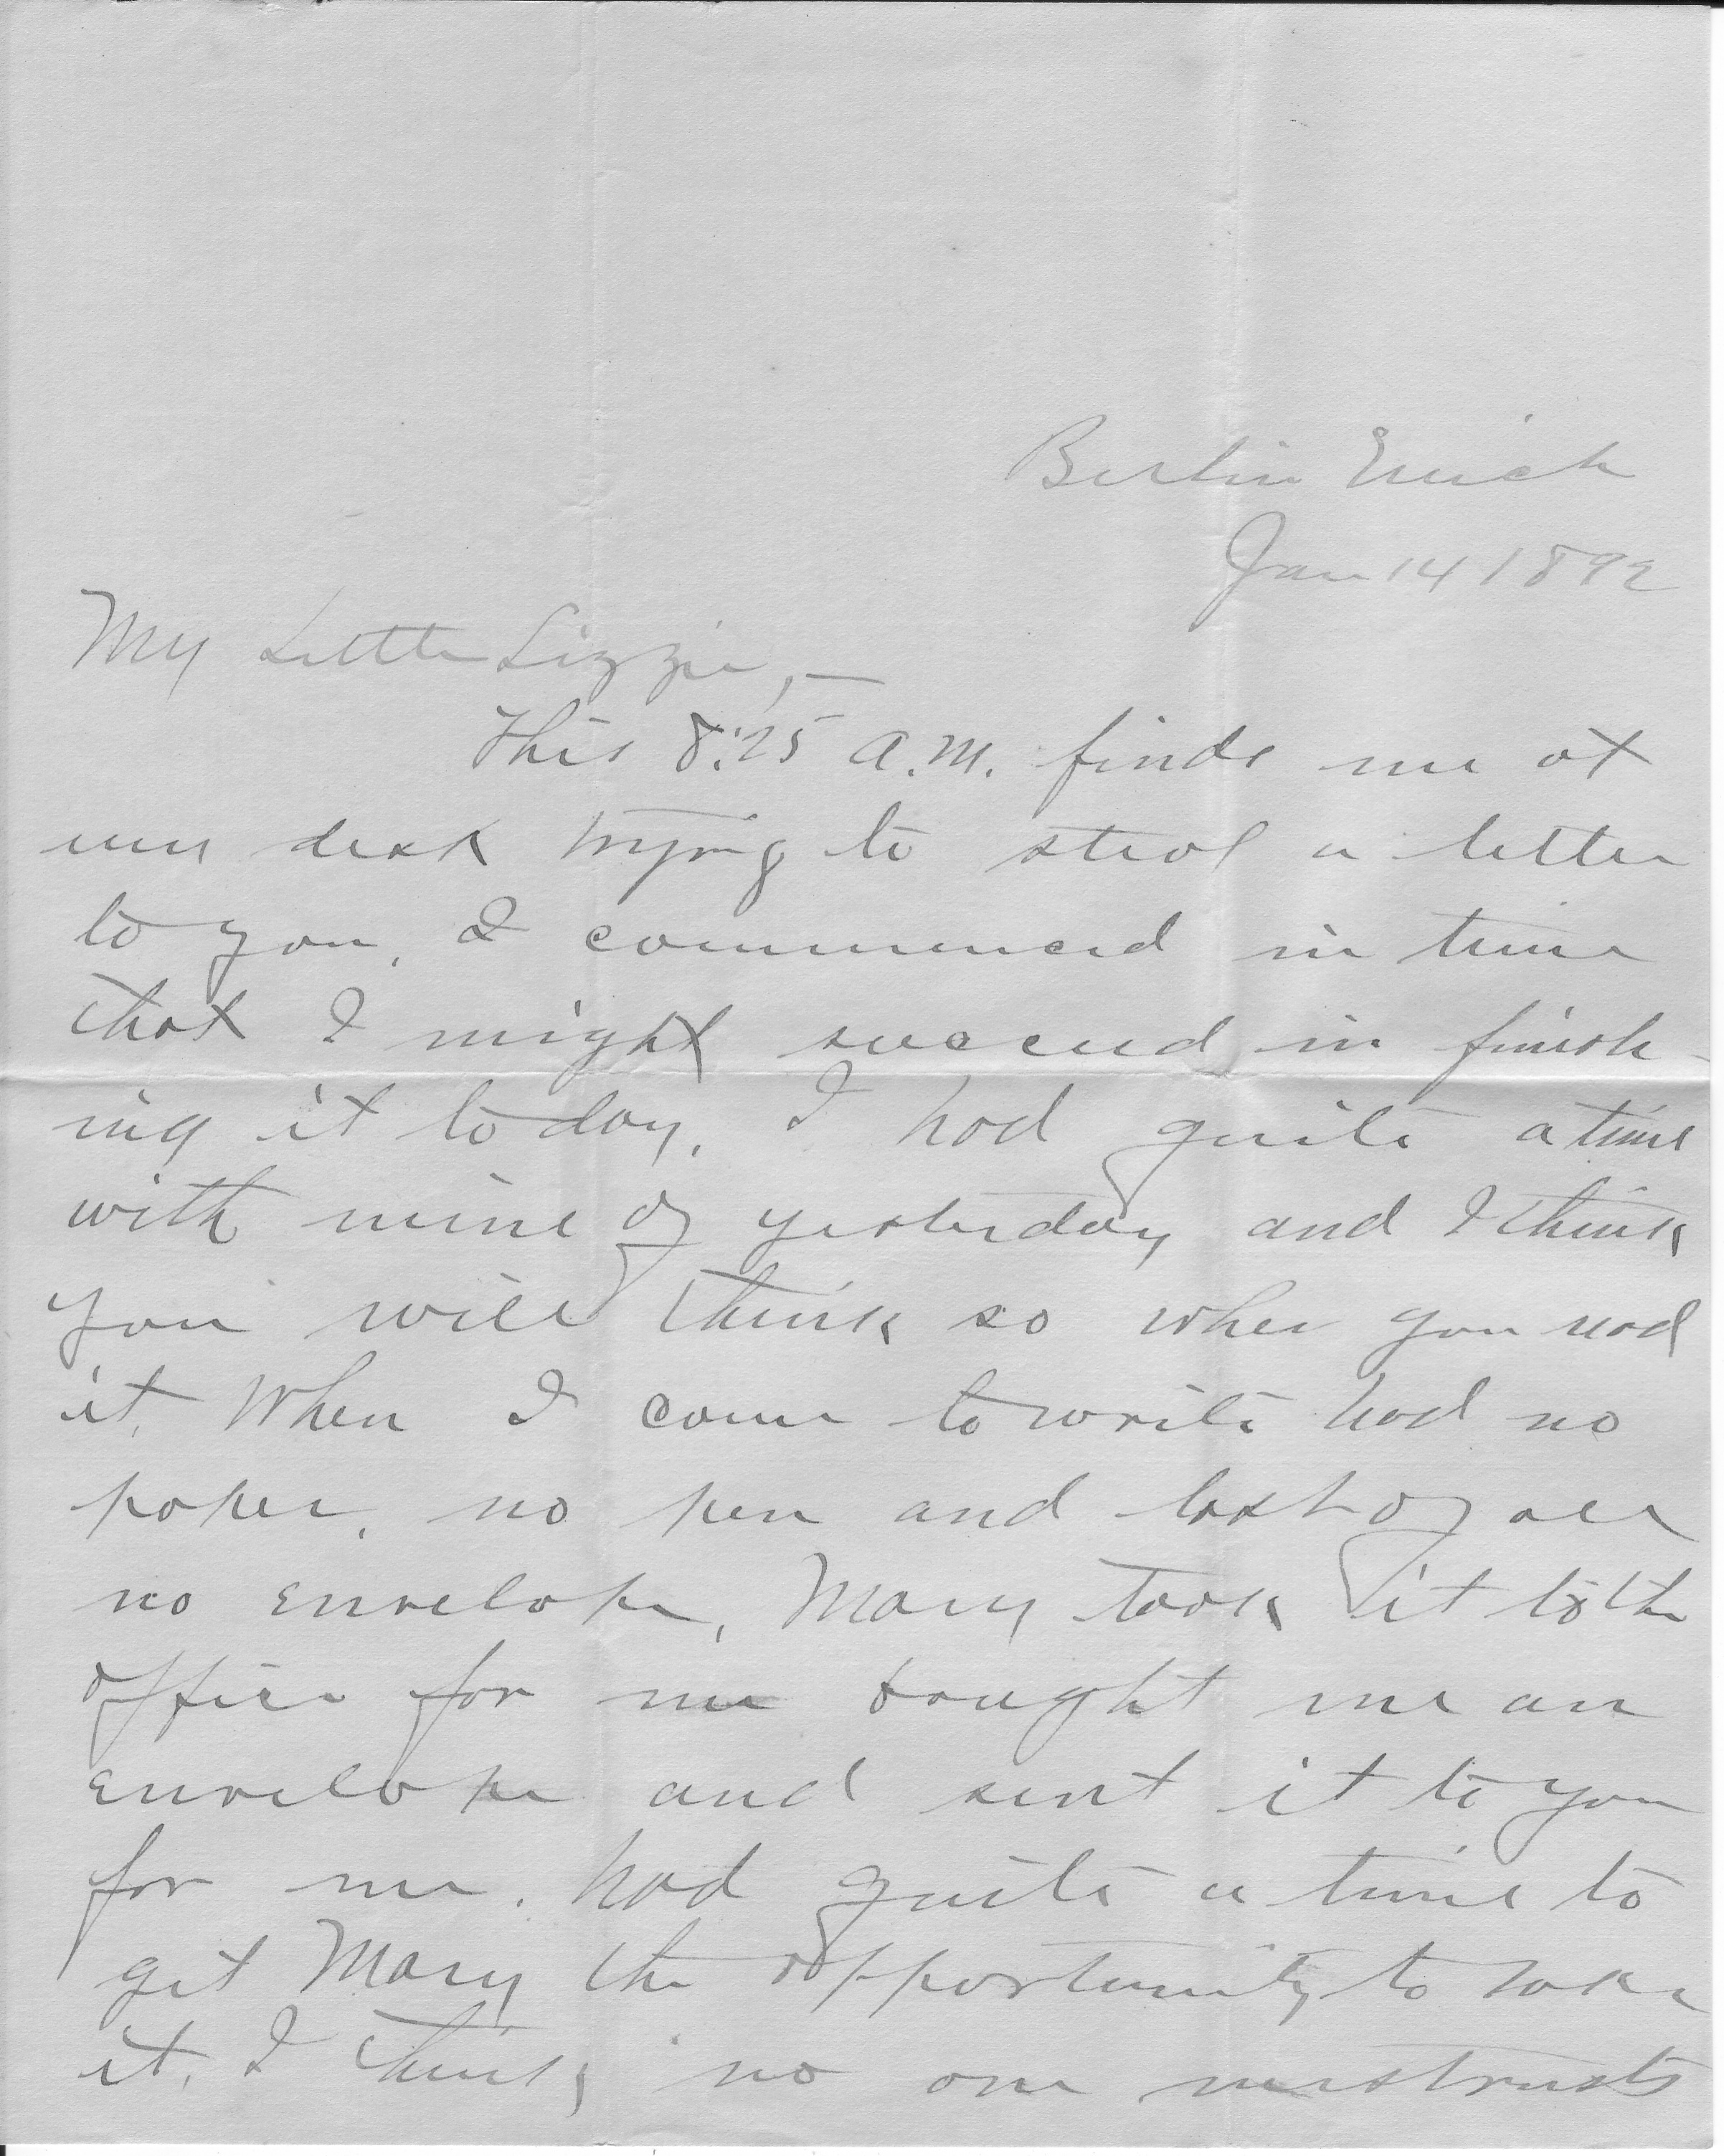 Berlin Mich
Jan 14 1892
My Little Lizzie, —
This 8:25 A.M. finds me at
my desk trying to steal a letter
to you. I commenced in time
that I might succeed in finish-
ing it to day. I had quite a time
with mine of yesterday and I think
you will think so when you read
it. When I came to write had no
paper, no pen and last of all
no envelope, Mary took it to the
office for me bought me an
envelope and sent it to you
for me. had quite a time to
get Mary the opportunity to take
it. I think no one mistrusts